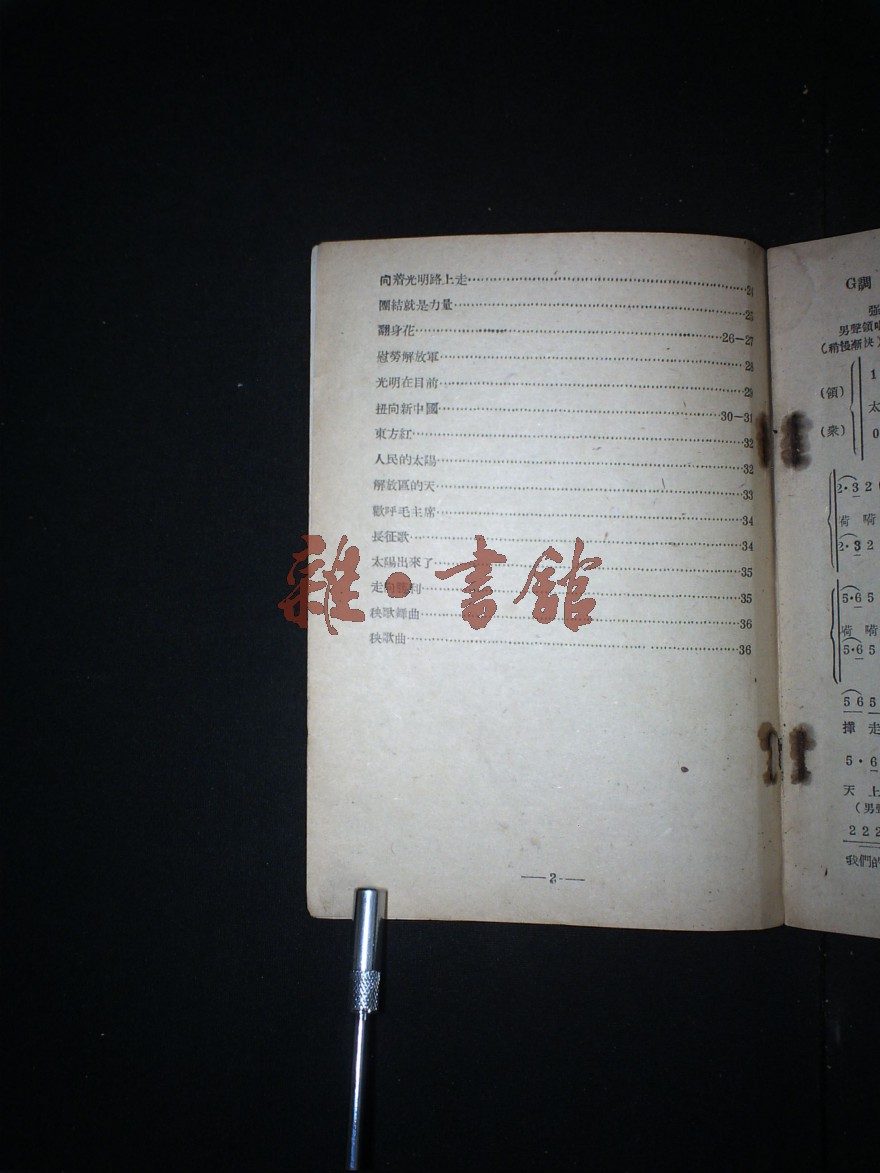 向着光明路上走……24
團結就是力量……25
翻身花……26—27
慰勞解放軍……28
光明在目前……29
扭向新中國……30—31
東方紅……32
人民的太陽……32
解放區的天……33
歡呼毛主席……34
長征歌……34
太陽出來了……35
走向勝利……35
秧歌舞曲……36
秧歌曲……36
—2—
雜·書館
G調
男聲領
(稍慢漸快)
(領)
1
太
(衆)
0
2·3 2
嗬 嗬
2·3 2
5·6 5
嗬 嗬
5·6 5
5 6 5
走
5·6
天上
(男
2 2 2
我們的